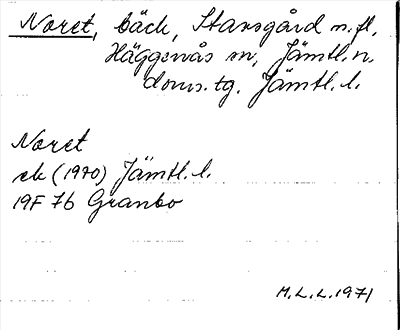 Noret, bäck, Stavsgård m.fl.
Häggenås sn, Jämtl. n.
doms.tg. Jämtl. l.
Noret
ek (1970) Jämtl. l.
19F 7b Granbo
M.L.L. 1971